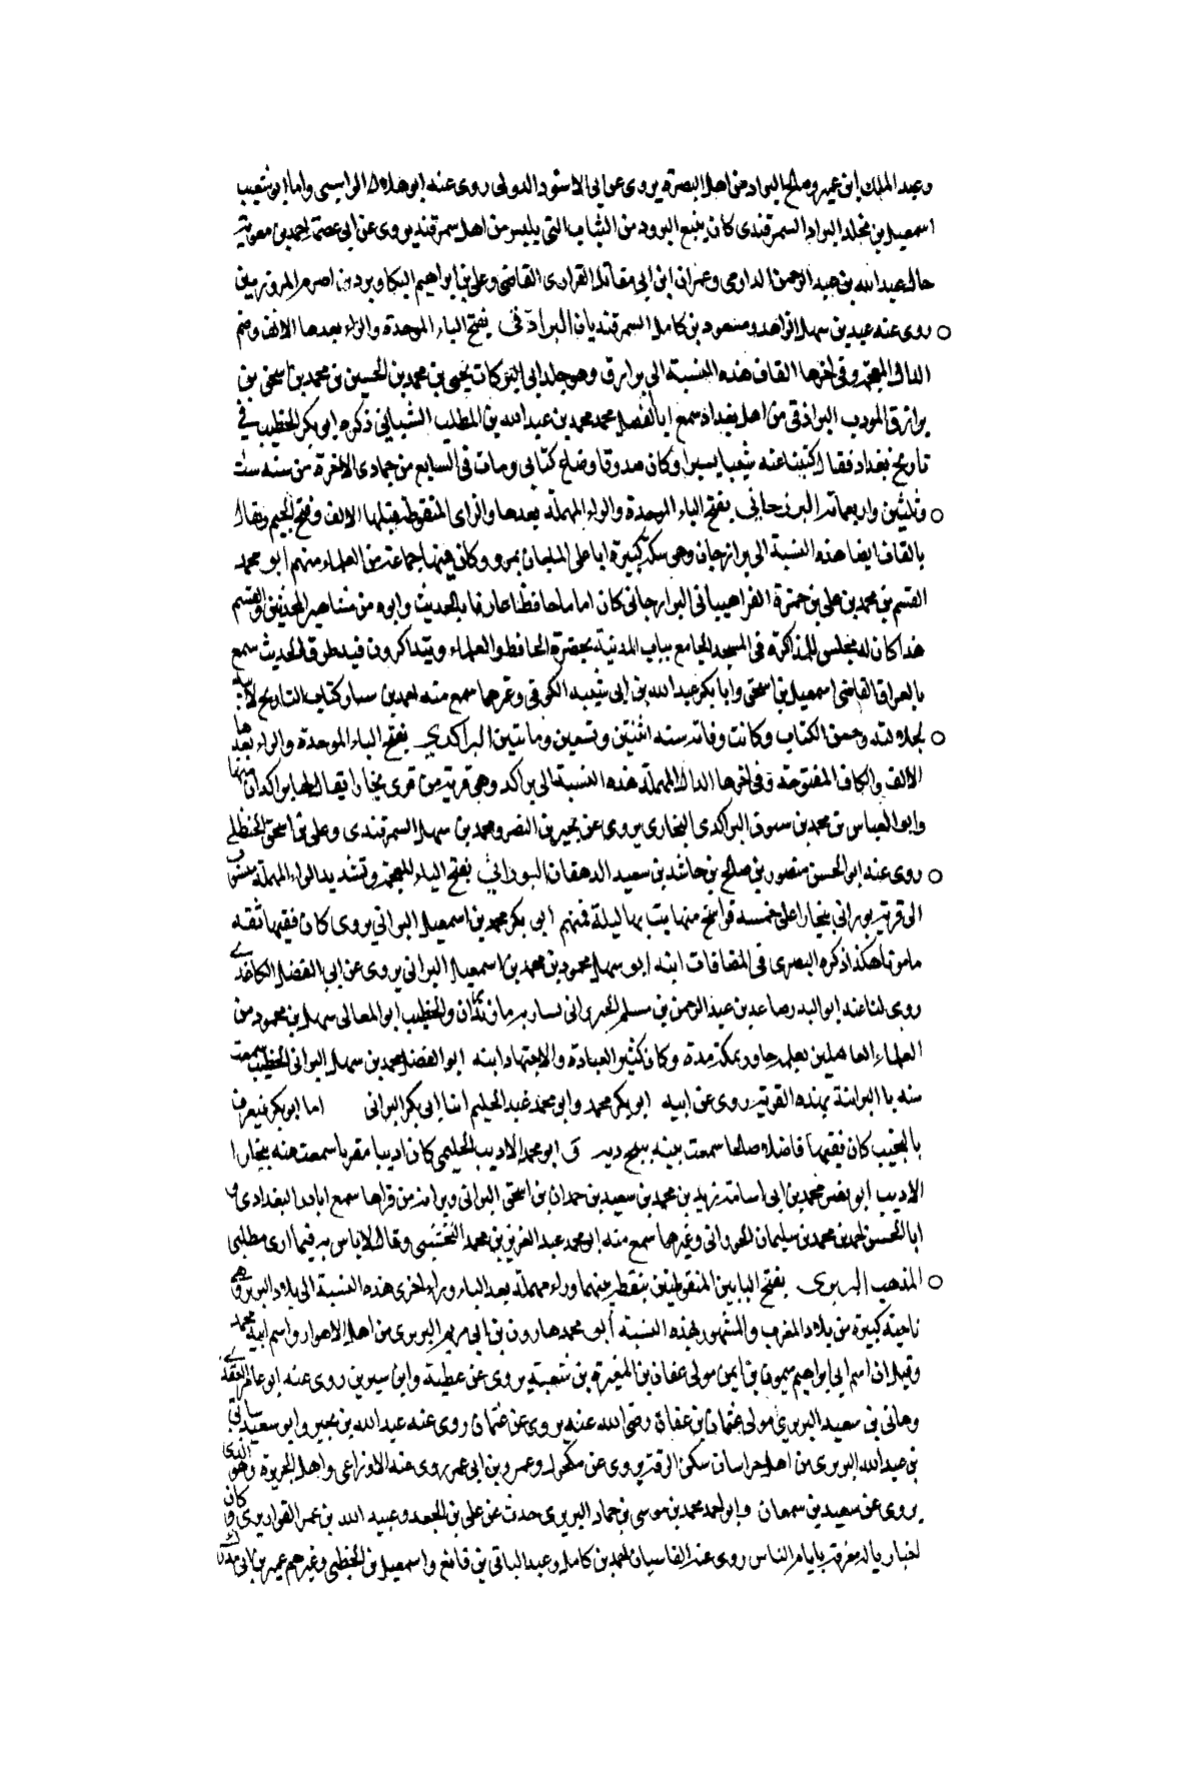 وعبد الملك ابن عمير وصالح البراد من اهل البصرة يروى عن ابى الاسود الدولى روى عنه ابو هلال الراسبى واما ابو شعيب
اسمعيل بن مخلد البراد السمرقندى كان يبيع البرود من الثياب التى يلبس من اهل سمرقند يروى عن ابى عصمة احمد بن معوية
خال عبد الله بن عبد الرحمن الدارمى وعمران ابن ابى مقاتل القرارى القاضى وعلى بن ابراهيم البكا وبرد بن اصرم المروزيين
روى عنه عبيد بن سهل الزاهد ومسعود بن كامل السمرقنديان البراذقى بفتح الباء الموحدة والراء بعدها الالف وضم
الذال المعجمة وفى اخرها القاف هذه النسبة الى براذق وهو جد ابى البركات يحيى بن محمد بن الحسين بن محمد بن اسحق بن
براذق المودب البراذقى من اهل بغداد سمع ابا الفضل محمد بن عبد الله بن المطلب الشيبانى ذكره ابو بكر الخطيب فى
تاريخ بغداد فقال كتبنا عنه شيا يسيرا وكان صدوقا وضاع كتابى ومات فى السابع من جمادى الاخرة من سنه ست
وثلثين واربعمائة البرزجانى بفتح الباء الموحدة والراء المهملة بعدها والزاى المنقوطة قبلها الالف وفتح الجيم ويقال
بالقاف ايضا هذه النسبة الى برازجان وهى سكة كبيرة باعلى البلد بمرو وكان فيها جماعة من العلماء منهم ابو محمد
القسم بن محمد بن على بن حمزة الفراهيبانى البرازجانى كان اماما حافظا عارفا بالحديث وابوه من مشاهير المحدثين والقسم
هذا كان له مجلس للمذاكرة فى المسجد الجامع بباب المدنية يحضره الحافظ والعلماء ويتذاكرون فيه طرق الحديث سمع
بالعراق القاضى اسمعيل بن اسحق وابا بكر عبد الله بن ابى شيبه الكوفى وغيرها سمع منه احمد بن سيار كتاب التاريخ لابيه
لجلالته وحسن الكتاب وكانت وفاته سنه اثنتين وتسعين ومائتين البراكدى بفتح الباء الموحدة والراء بعدها
الالف والكاف المفتوحة وفى اخرها الدال المهملة هذه النسبة الى براكد وهى قرية من قرى بخارا يقال لها براكدان منها
وابو العباس بن محمد بن البراكدى البخارى يروى عن بجير بن النضر ومحمد بن سهل السمرقندى وعلى بن اسحق الحنظلى
روى عنه ابو الحسن منصور بن صالح بن حاشد بن سعيد الدهقان البورانى بفتح الباء المعجمة وتشديد الراء المهملة منسوب
الى قرية بورانى بخارا على خمسه فراسخ منها بت بها ليلة فمنهم ابى بكر محمد بن اسمعيل البرانى يروى كان فقيها ثقه
مامونا هكذا ذكره البصرى فى المضافات ابنه ابو سهل محمود بن محمد بن اسمعيل البرانى يروى عن ابى الفضل الكاغدى
روى لنا عنه ابو البدر صاعد بن عبد الرحمن بن مسلم الخيرانى والخطيب ابو المعالى سهل بن محمود من
العلماء العاملين بعلمه جاور بمكة مدة وكان كثير العبادة والاجتهاد ابنه ابو الفضل محمد بن سهل البرانى الخطيب سمعت
منه با البرانية بهذه القرية روى عن ابيه ابو بكر محمد وابو محمد عبد الحليم ابنا ابى بكر البرانى اما ابو بكر فيعرف
بالنجيب كان فقيها فاضلا صالحا سمعت بينه و ابو محمد الاديب الحليمى كان اديبا مقريا سمعت منه ببخارا
الاديب ابو نصر محمد بن ابى اسامة زيد بن محمد بن سعيد بن حمدان بن اسحق البرانى وبرانه من قراها سمع البغدادى و
ابا الحسن احمد بن محمد بن سليمان الحرورانى وغيرها سمع منه ابو محمد عبد العزيز بن محمد النخشبى وقال لاباس به فيما ارى مطلبى
المذهب البربرى بفتح البايين المنقوطتين بنقطة منهما وراء مهملة بعد الباء وراء اخرى هذه النسبة الى بلاد البربر وهى
ناحية كبيرة من بلاد المغرب والمشهور بهذه النسبة ابو محمد هارون بن ابى مريم البربرى من اهل الاهواز واسم ابيه محمد
وقيل ان اسم ابى ابراهيم ميمون بن ايمن مولى عفان بن المغيرة بن شعبة يروى عن عطية وابن سيرين روى عنه ابو عامر العقدى
وهانى بن سعيد البربرى مولى عثمان بن عفان رضى الله عنه يروى عن عثمان روى عنه عبد الله بن بحير وابو سعيد سابق
بن عبد الله البربرى من اهل خراسان سكن الرقة يروى عن مكحول وعمرو بن ابى عمر روى عنه الاوزاعى واهل الجزيرة وهو الذى
يروى عن سعيد بن سمعان وابو احمد محمد بن موسى بن حماد البربرى حدث عن على بن الجعد وعبيد الله بن عمر القواريرى وكان
اخباريا له معرفة بايام الناس روى عنه القاسيان احمد بن كامل وعبد الباقى بن قانع واسمعيل بن الخطبى وغيرهم عمير بن ابى